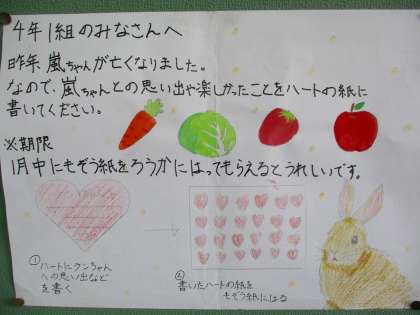 4年1組のみなさんへ
昨年、嵐ちゃんが亡くなりました。
なので、嵐ちゃんとの思い出や楽しかったことをハートの紙に
書いてください。
※期限
1月中にもぞう紙をろうかにはってもらえるとうれしいです。
①ハートにランちゃん
への思い出など
を書く
②書いたハートの紙を
もぞう紙にはる